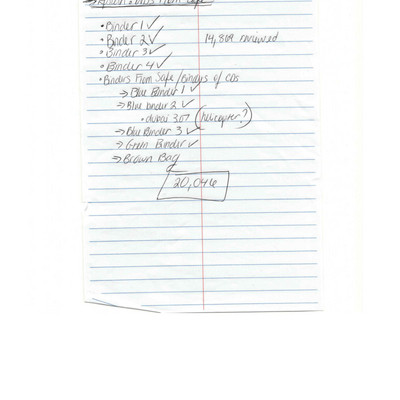 From Safe
• Binder 1 ✓
• Binder 2 ✓ 14,869 reviewed
• Binder 3 ✓
• Binder 4 ✓
• Binders From Safe/Binders of CDs
→ Blue Binder 1 ✓
→ Blue binder 2 ✓
• dubai 307 (helicopter?)
→ Blue Binder 3 ✓
→ Green Binder ✓
→ Brown Bag
20,046